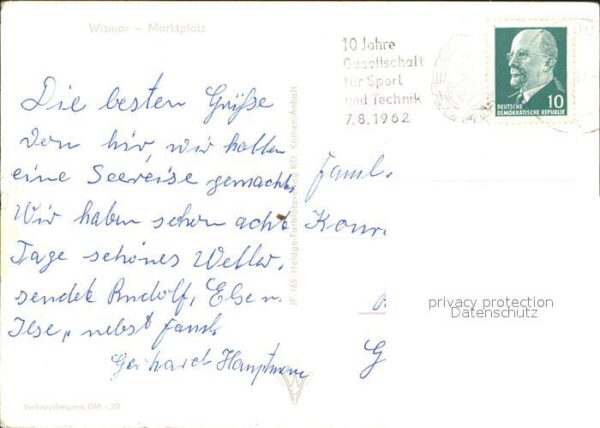 Wismar – Marktplatz
10 Jahre
Gesellschaft
für Sport
und Technik
7.8.1962
DEUTSCHE
DEMOKRATISCHE REPUBLIK
10
Die besten Grüße
von hir, wir hatten
eine Seereise gemacht.
Wir haben schon acht
Tage schönes Wetter.
sendet Rudolf, Else u.
Ilse, nebst Famil.
Gerhard Hauptmann
Famil.
Konr
G
privacy protection
Datenschutz
Verbraucherpreis DM -.20